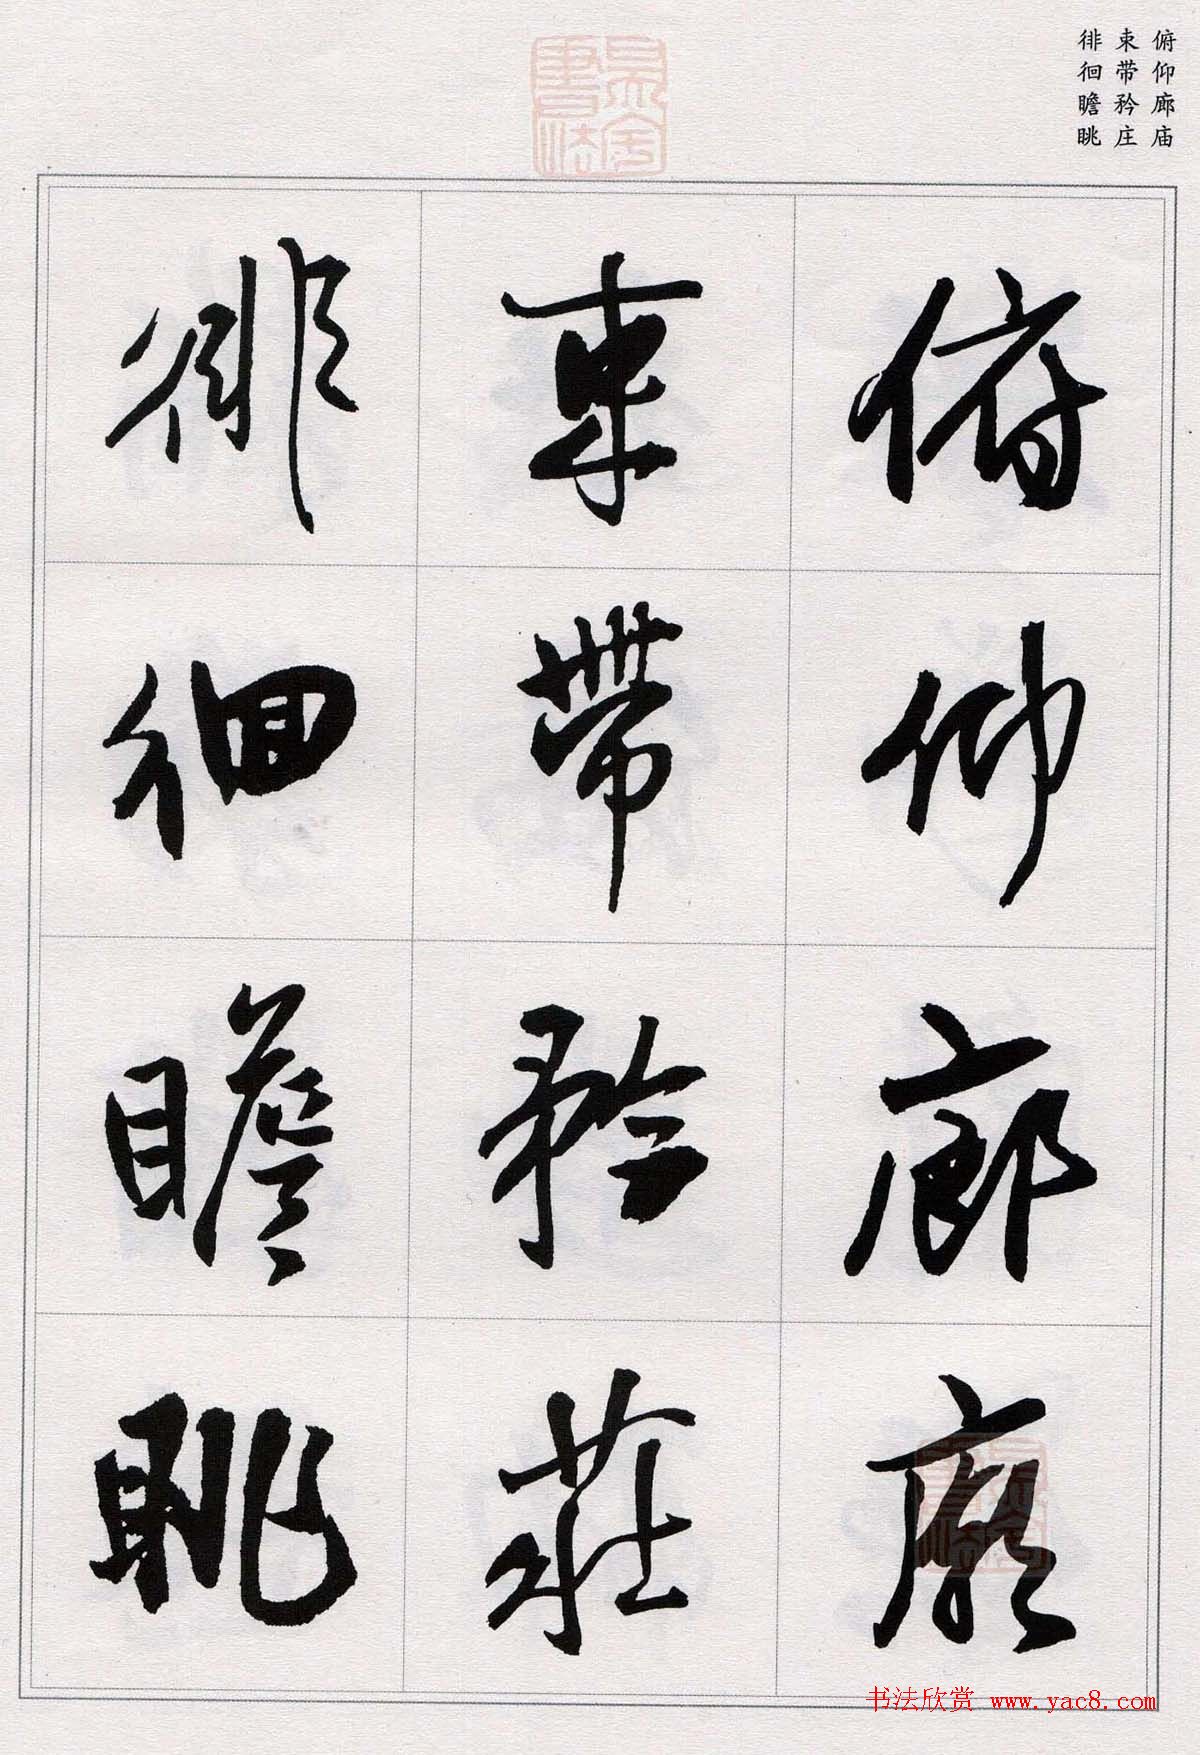 俯仰廊庙
束带矜庄
徘徊瞻眺
俯仰廊廟
束帶矜莊
徘徊瞻眺
书法欣赏 www.yac8.com